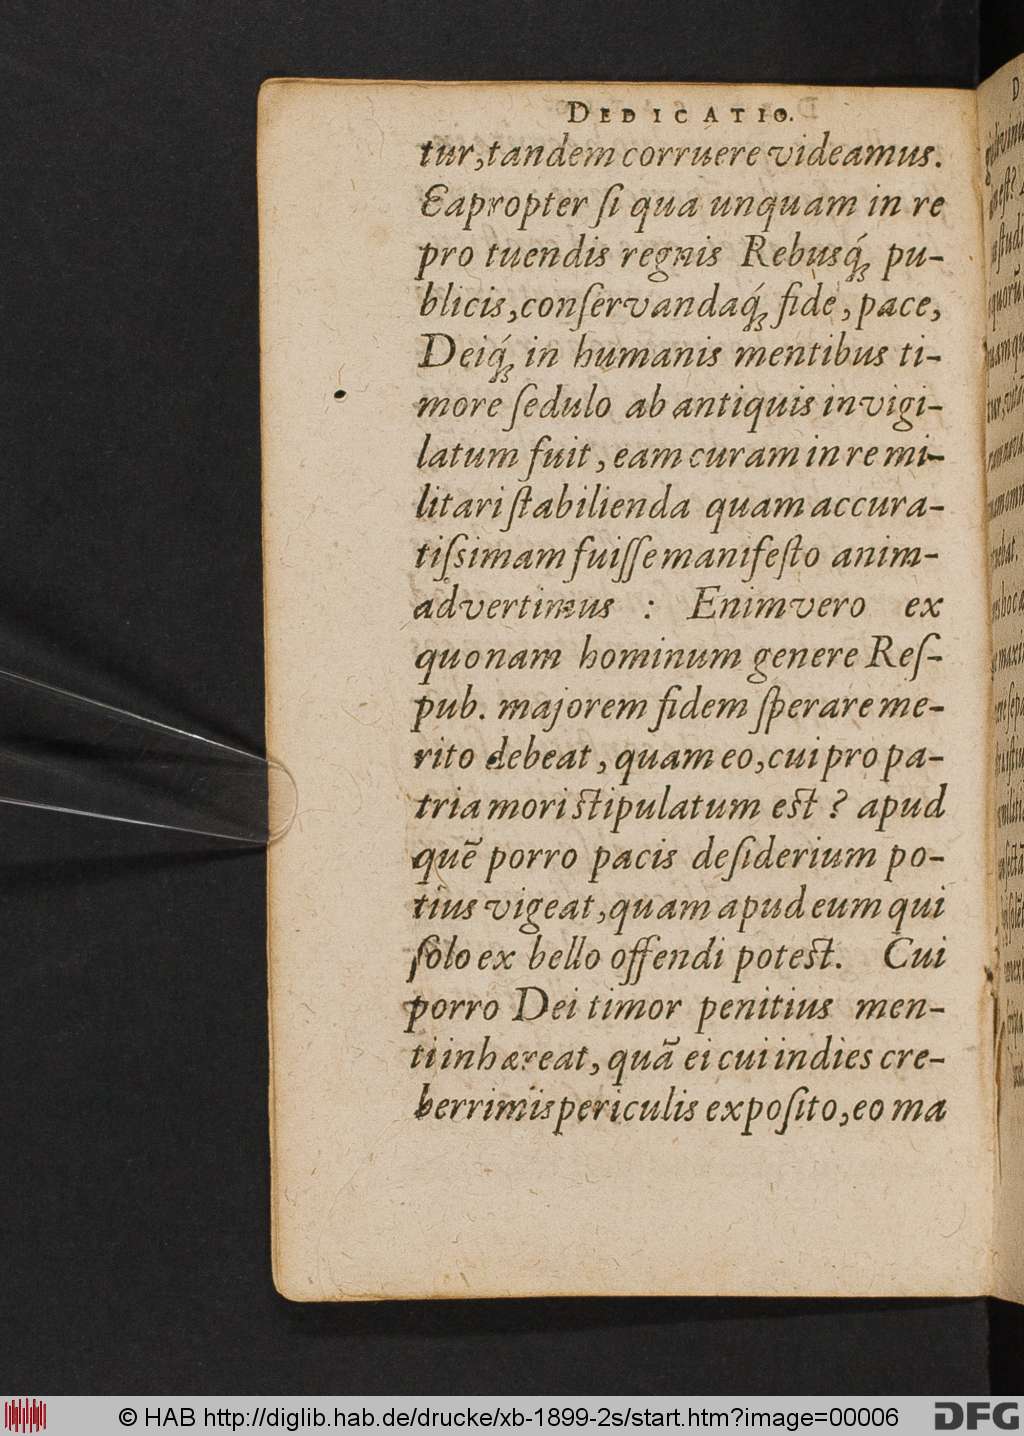 DEDICATIO.
tur, tandem corruere videamus.
Eapropter ſi qua unquam in re
pro tuendis regnis Rebusq́ꝫ pu-
blicis, conſervandaq́ꝫ fide, pace,
Deiq́ꝫ in humanis mentibus ti-
more ſedulo ab antiquis invigi-
latum fuit, eam curam in re mi-
litari ſtabilienda quam accura-
tiſsimam fuiſſe manifeſto anim-
advertimus : Enimvero ex
quonam hominum genere Reſ-
pub. majorem fidem ſperare me-
rito debeat, quam eo, cui pro pa-
tria mori ſtipulatum eſt ? apud
quē porro pacis deſiderium po-
tius vigeat, quam apud eum qui
ſolo ex bello offendi poteſt. Cui
porro Dei timor penitius men-
ti inhæreat, quā ei cui indies cre-
berrimis periculis expoſito, eo ma
© HAB http://diglib.hab.de/drucke/xb-1899-2s/start.htm?image=00006
DFG